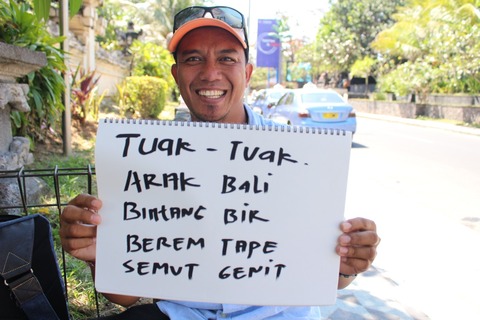 TUAK - TUAK.
ARAK BALI
BINTANG BIR
BEREM TAPE
SEMUT GENIT